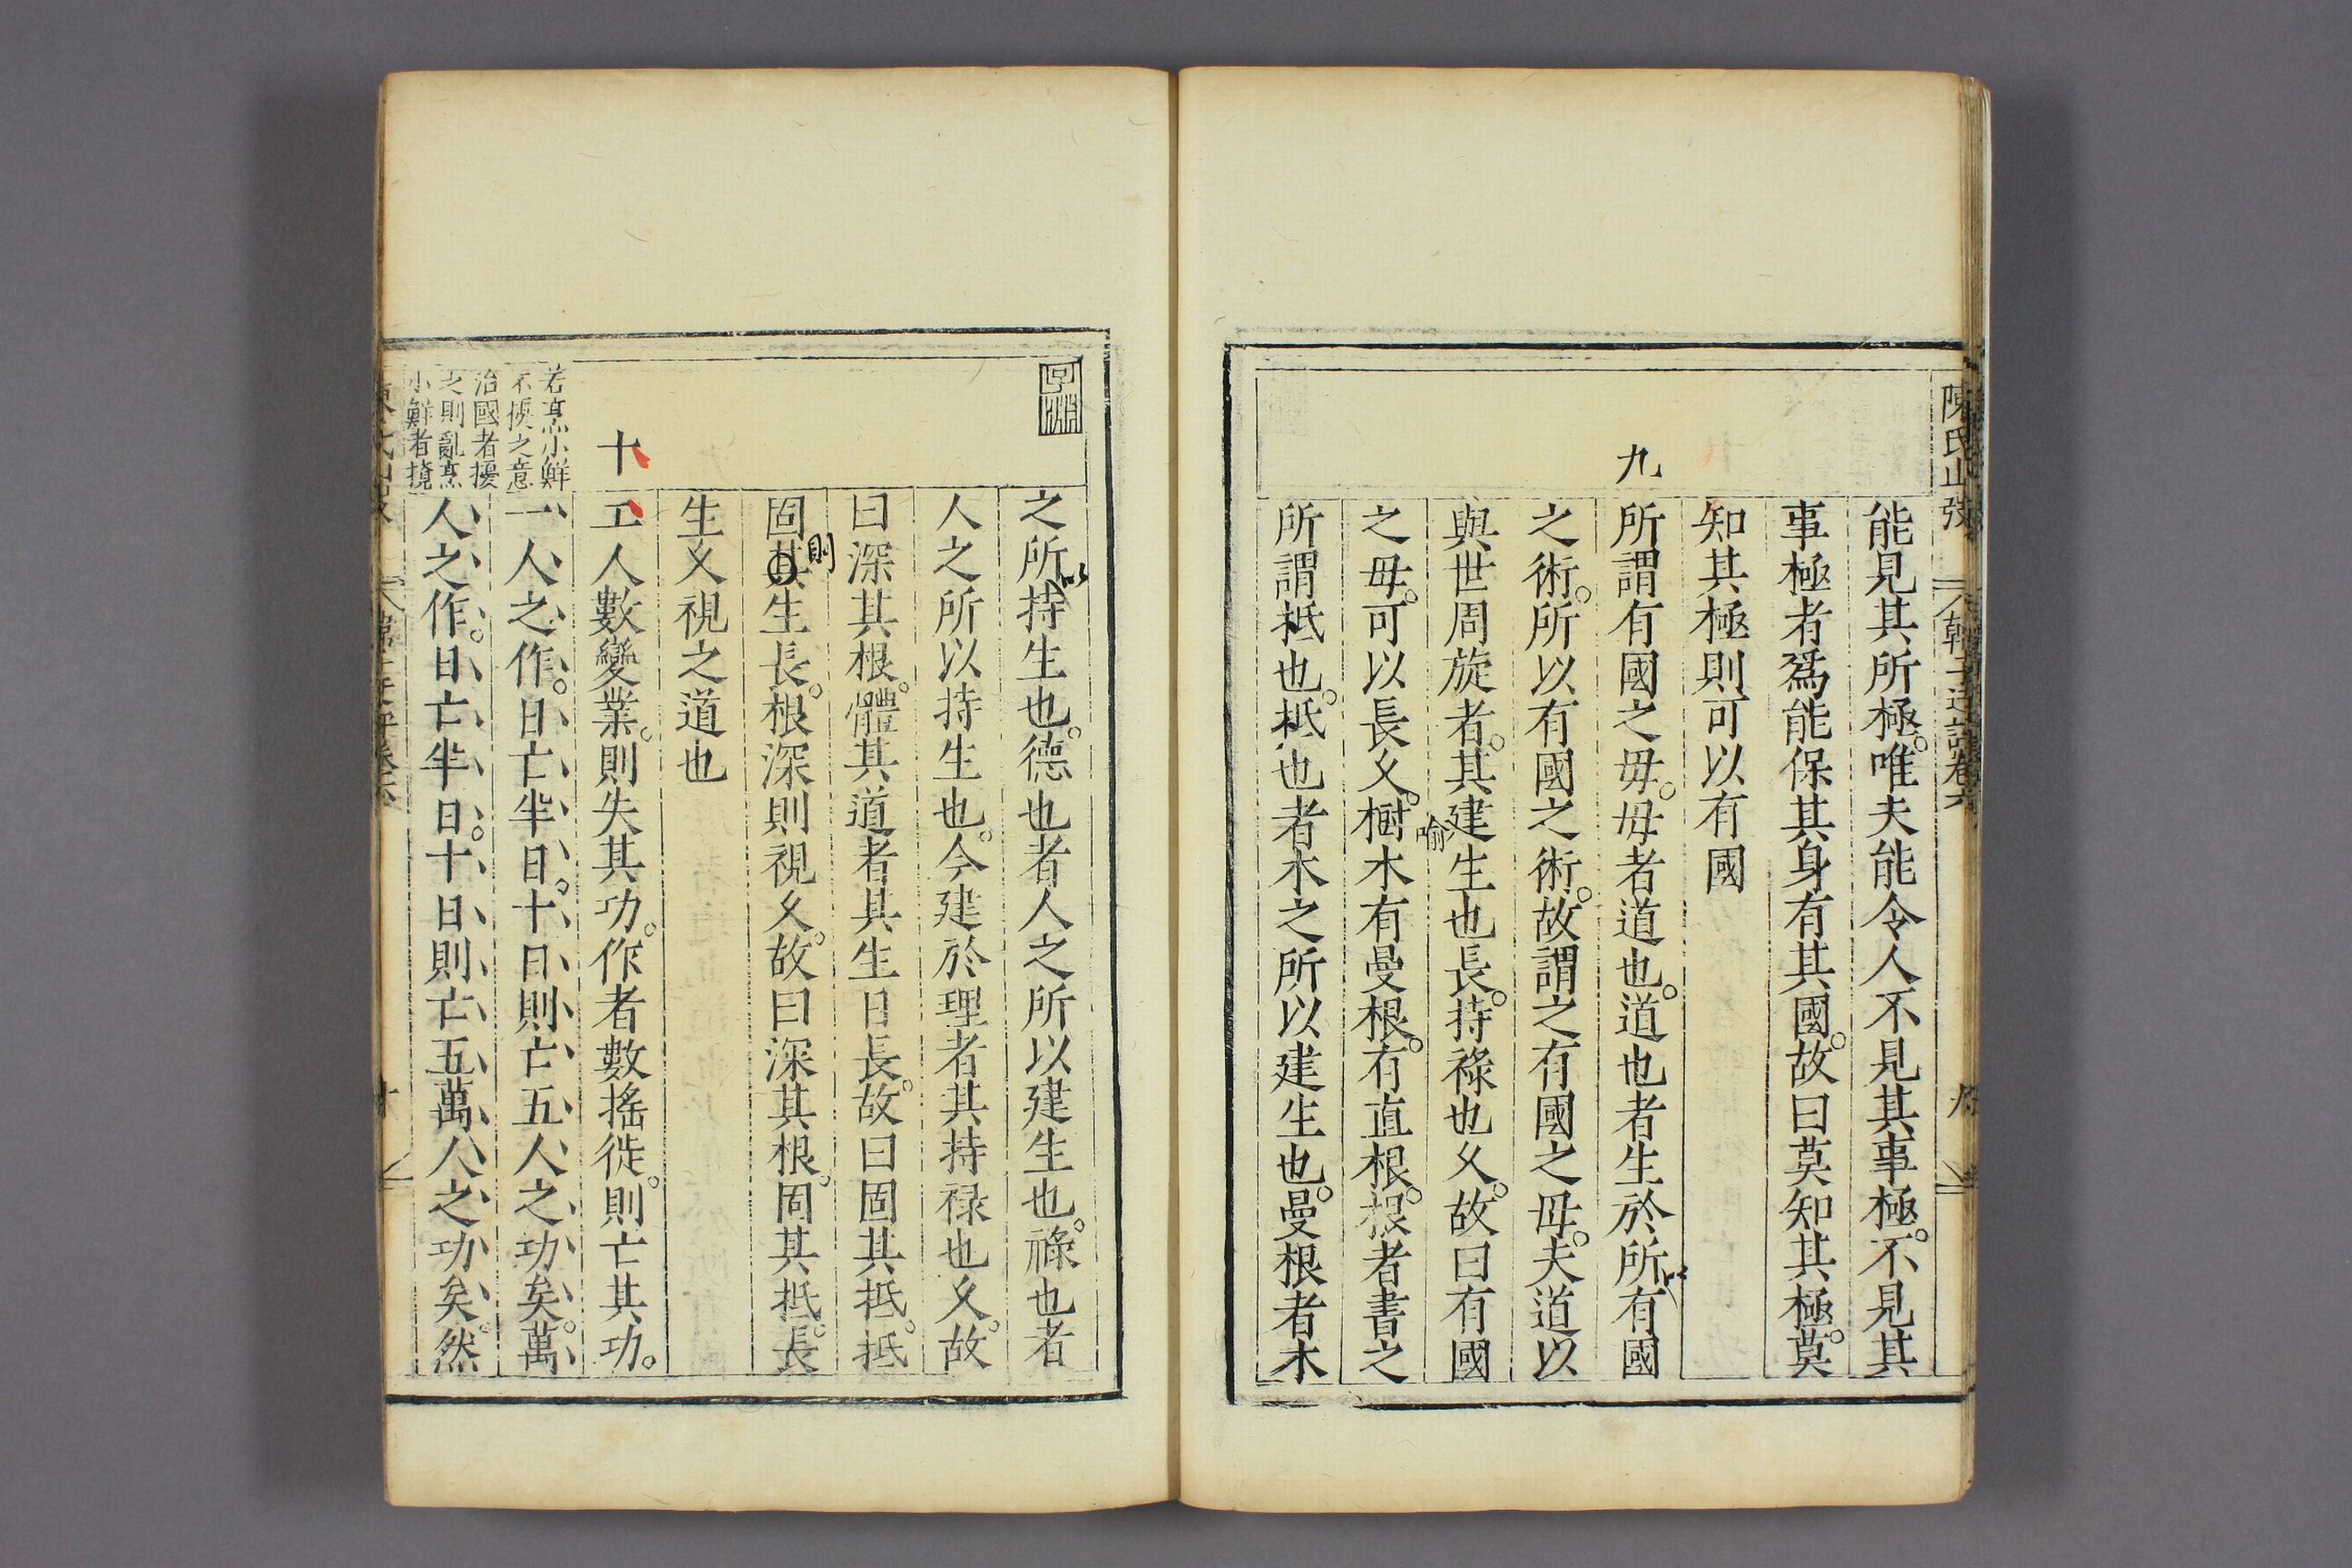 陳氏
韓子迂評卷六
九
能見其所極唯夫能令人不見其事極不見其
事極者爲能保其身有其國故曰莫知其極莫
知其極則可以有國
九
所謂有國之毋毋者道也道也者生於所有國
以
之術所以有國之術故謂之有國之毋夫道以
與世周旋者其建生也長持祿也乆故曰有國
之毋可以長乆樹木有曼根有直根根者書之
喻
所謂柢也柢也者木之所以建生也曼根者木
之所持生也德也者人之所以建生也祿也者
以
人之所以持生也今建於理者其持禄也乆故
曰深其根體其道者其生日長故曰固其柢柢
固其生長根深則視乆故曰深其根固其柢長
則
生乆視之道也
十
工人數變業則失其功作者數搖徙則亡其功
若烹小鮮
不擾之意
治國者擾
之則亂烹
小鮮者撓
一人之作日亡半日十日則亡五人之功矣萬
人之作日亡半日十日則亡五萬人之功矣然